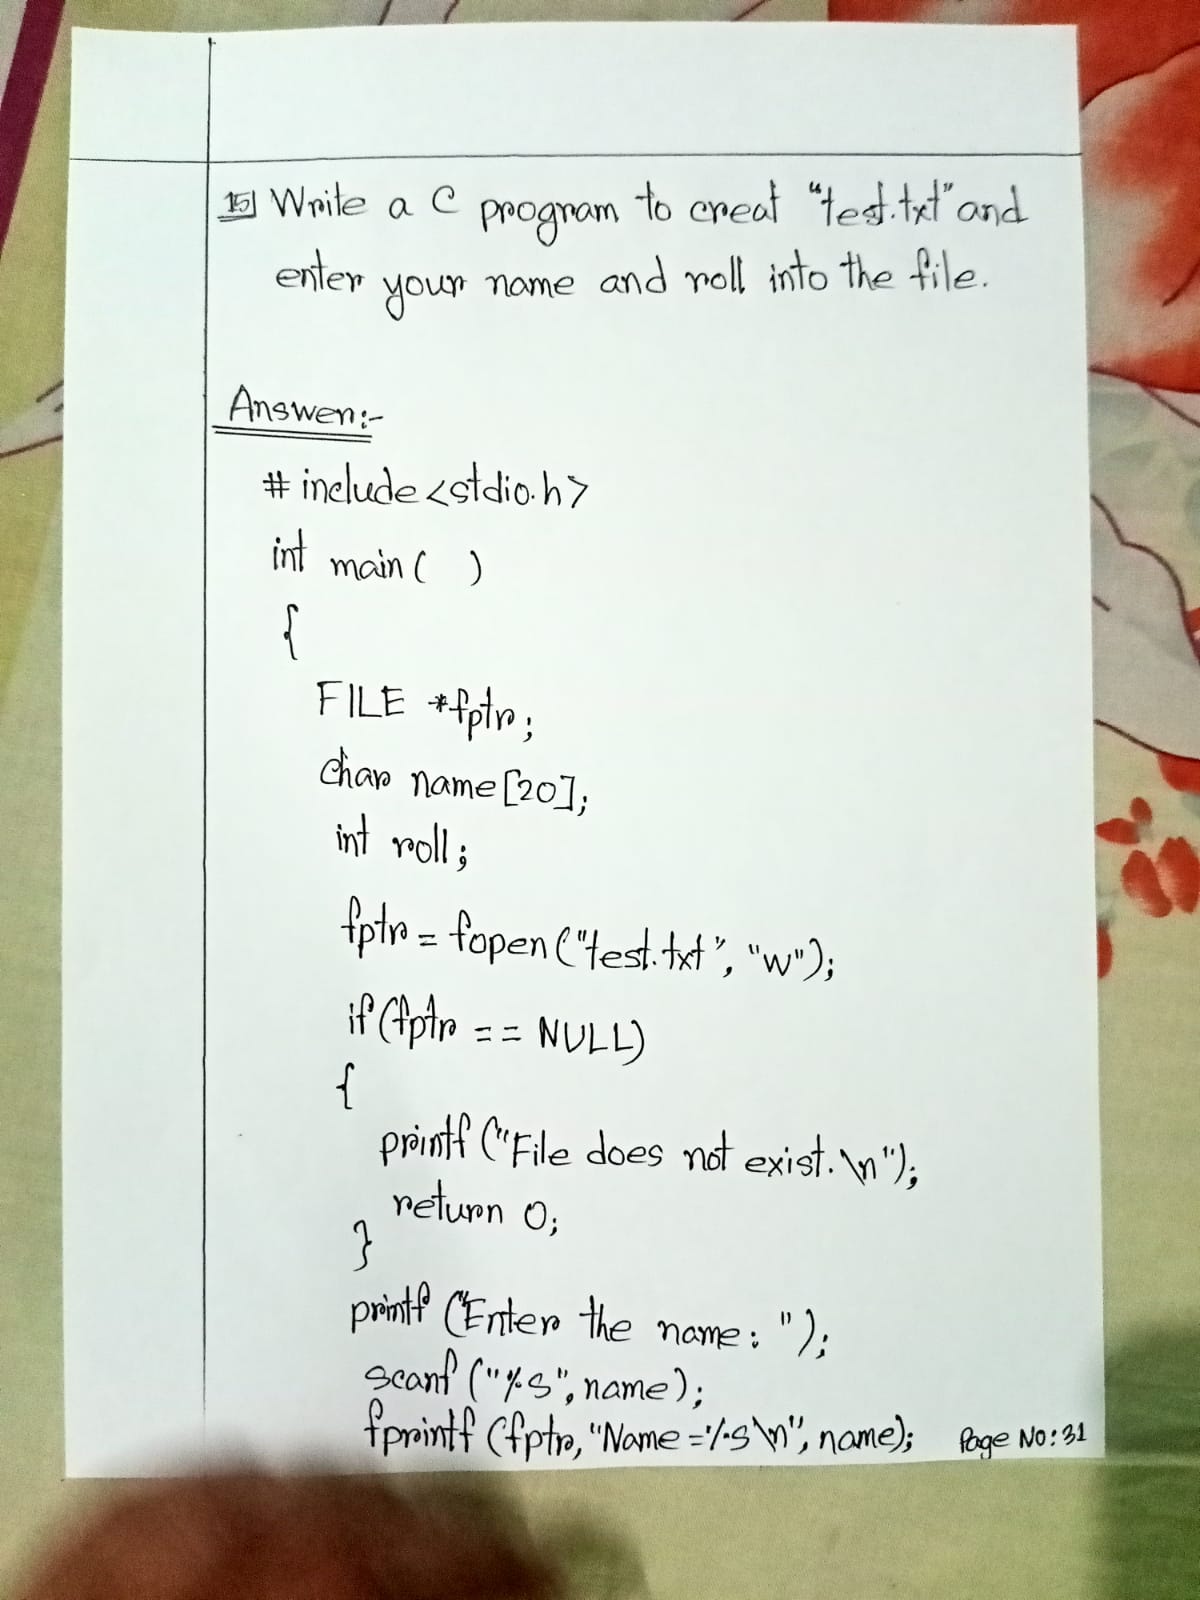 15] Write a C program to creat "test.txt" and
enter your name and roll into the file.
Answer:-
# include <stdio.h>
int main( )
{
FILE *fptr;
char name[20];
int roll;
fptr = fopen("test.txt", "w");
if(fptr == NULL)
{
printf("File does not exist. \n");
return 0;
}
printf("Enter the name: ");
scanf("%s", name);
fprintf(fptr, "Name =%s\n", name);
Page No: 31